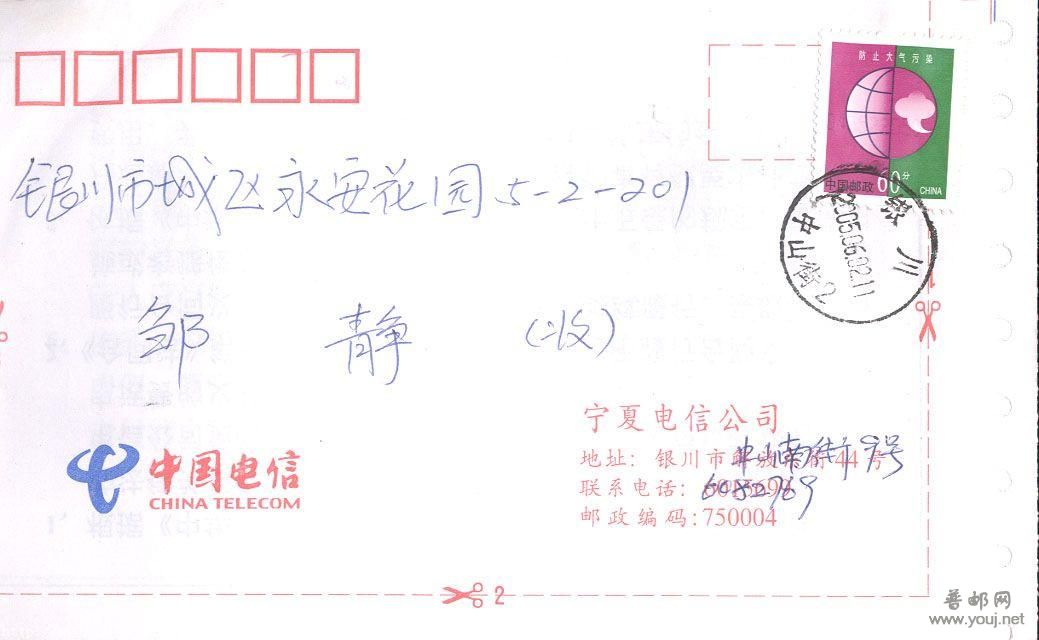 防止大气污染
中国邮政 60分 CHINA
银川市城区永安花园5-2-201
银川
2005.06.02.11
中山街2
邹 静 (收)
宁夏电信公司
地址: 银川市解放东街44号
中山南街9号
联系电话:
6082969
邮政编码:750004
中国电信
CHINA TELECOM
2
普邮网
www.youj.net